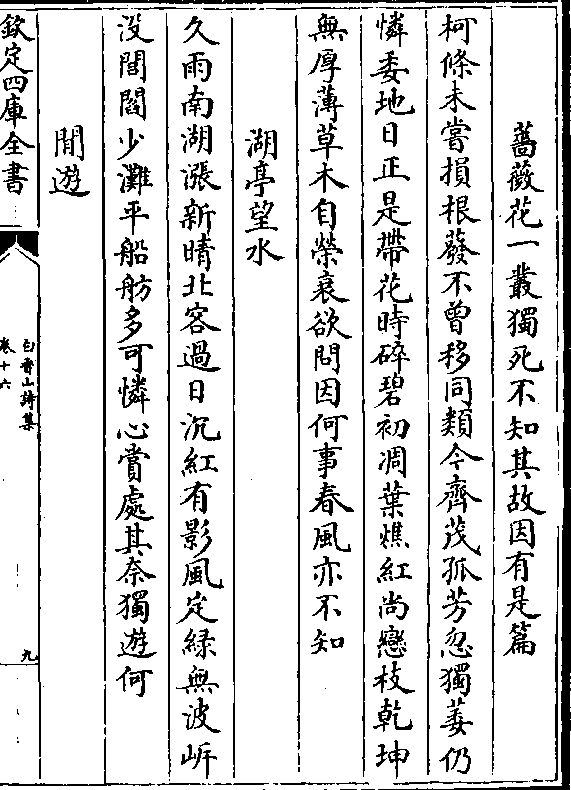 薔薇花一叢獨死不知其故因有是篇
柯條未嘗損根蕟不曾移同類今齊茂孤芳忽獨萎仍
憐委地日正是帶花時碎碧初凋葉燋紅尚戀枝乾坤
無厚薄草木自榮衰欲問因何事春風亦不知
湖亭望水
久雨南湖漲新晴北客過日沉紅有影風定緑無波岍
沒閭閻少灘平船舫多可憐心賞處其奈獨遊何
閒遊
欽定四庫全書
白香山詩集
卷十六
九